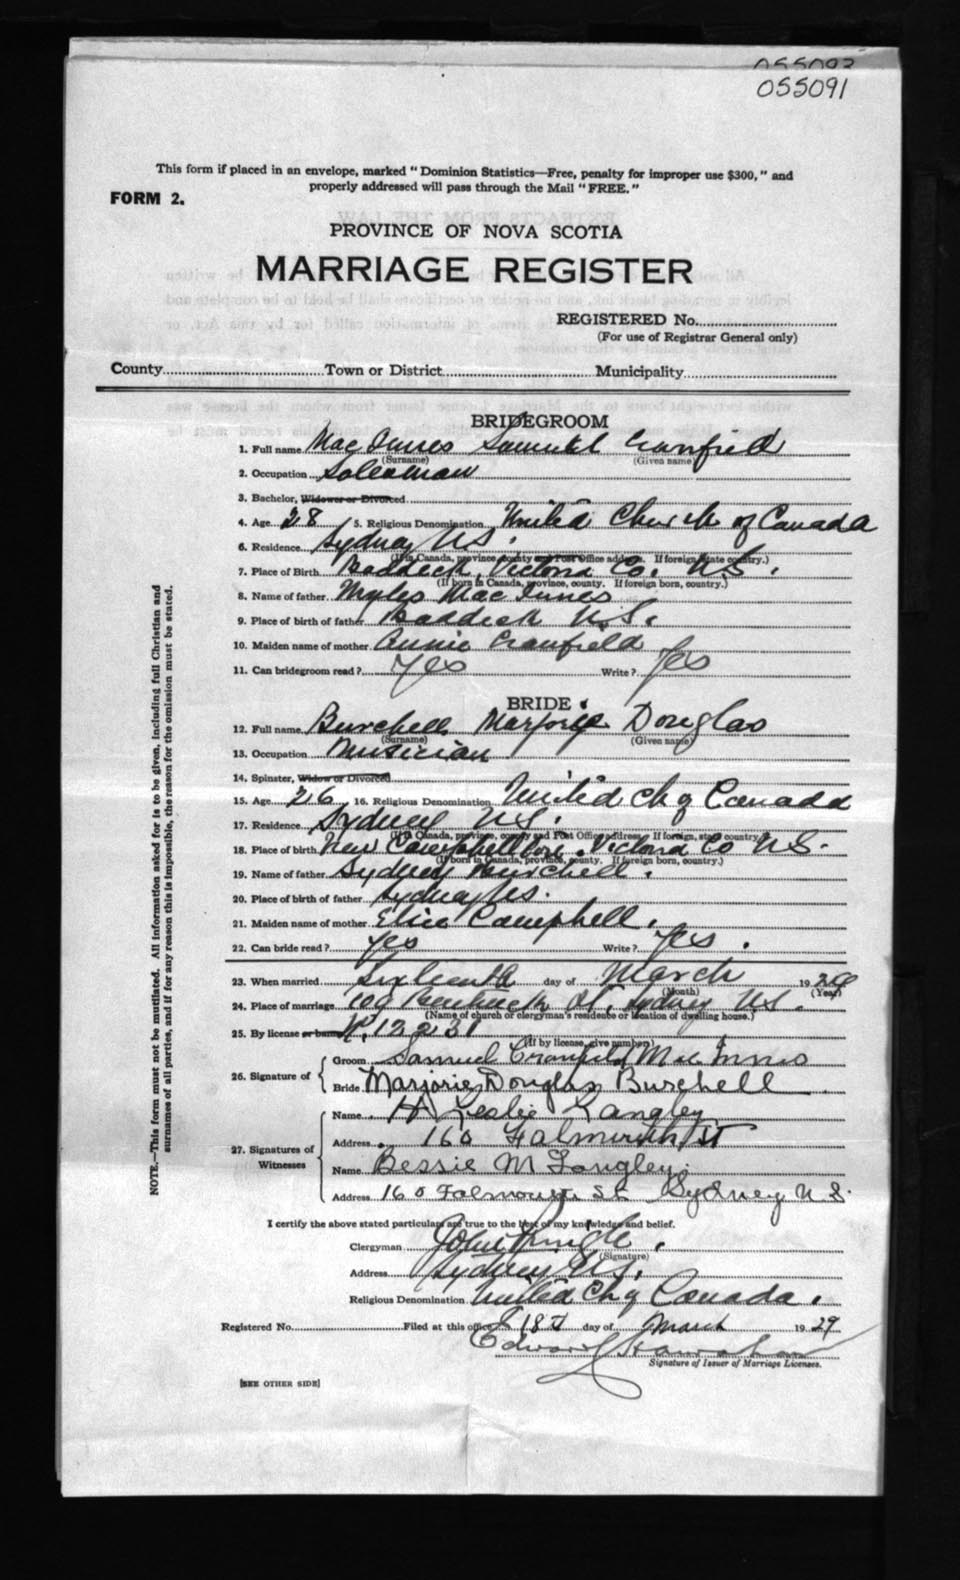 055093
055091
This form if placed in an envelope, marked "Dominion Statistics—Free, penalty for improper use $300," and
properly addressed will pass through the Mail "FREE."
FORM 2.
PROVINCE OF NOVA SCOTIA
MARRIAGE REGISTER
REGISTERED No.
(For use of Registrar General only)
County Town or District Municipality
BRIDEGROOM
1. Full name MacInnes Samuel Cranfield
(Surname) (Given name)
2. Occupation Salesman
3. Bachelor, Widower or Divorced
4. Age 28 5. Religious Denomination United Church of Canada
6. Residence Sydney N.S.
(If in Canada, province, county and Post Office address. If foreign, state country.)
7. Place of Birth Baddeck, Victoria Co. N.S.
(If born in Canada, province, county. If foreign born, country.)
8. Name of father Myles MacInnes
9. Place of birth of father Baddeck N.S.
10. Maiden name of mother Annie Cranfield
11. Can bridegroom read? Yes Write? Yes
BRIDE
12. Full name Burchell Marjorie Douglas
(Surname) (Given name)
13. Occupation Musician
14. Spinster, Widow or Divorced
15. Age 26 16. Religious Denomination United Ch of Canada
17. Residence Sydney N.S.
(If in Canada, province, county and Post Office address. If foreign, state country.)
18. Place of birth New Campbellton, Victoria Co N.S.
(If born in Canada, province, county. If foreign born, country.)
19. Name of father Sydney Burchell.
20. Place of birth of father Sydney N.S.
21. Maiden name of mother Eliza Campbell.
22. Can bride read? Yes Write? Yes.
23. When married Sixteenth day of March 1929
(Month) (Year)
24. Place of marriage 109 St. Sydney N.S.
(Name of church or clergyman's residence or location of dwelling house.)
25. By license or banns 12231
(If by license, give number)
26. Signature of
Groom Samuel Cranfield MacInnis
Bride Marjorie Douglas Burchell
27. Signatures of Witnesses
Name H Leslie Langley
Address 160 Falmouth St
Name Bessie M Langley
Address 160 Falmouth St Sydney N.S.
I certify the above stated particulars are true to the best of my knowledge and belief.
Clergyman John Pringle.
(Signature)
Address Sydney N.S.
Religious Denomination United Ch of Canada.
Registered No. Filed at this office 18th day of March 1929
Edward
Signature of Issuer of Marriage Licenses.
[SEE OTHER SIDE]
NOTE.—This form must not be mutilated. All information asked for is to be given, including full Christian and
surnames of all parties, and if for any reason this is impossible, the reason for the omission must be stated.